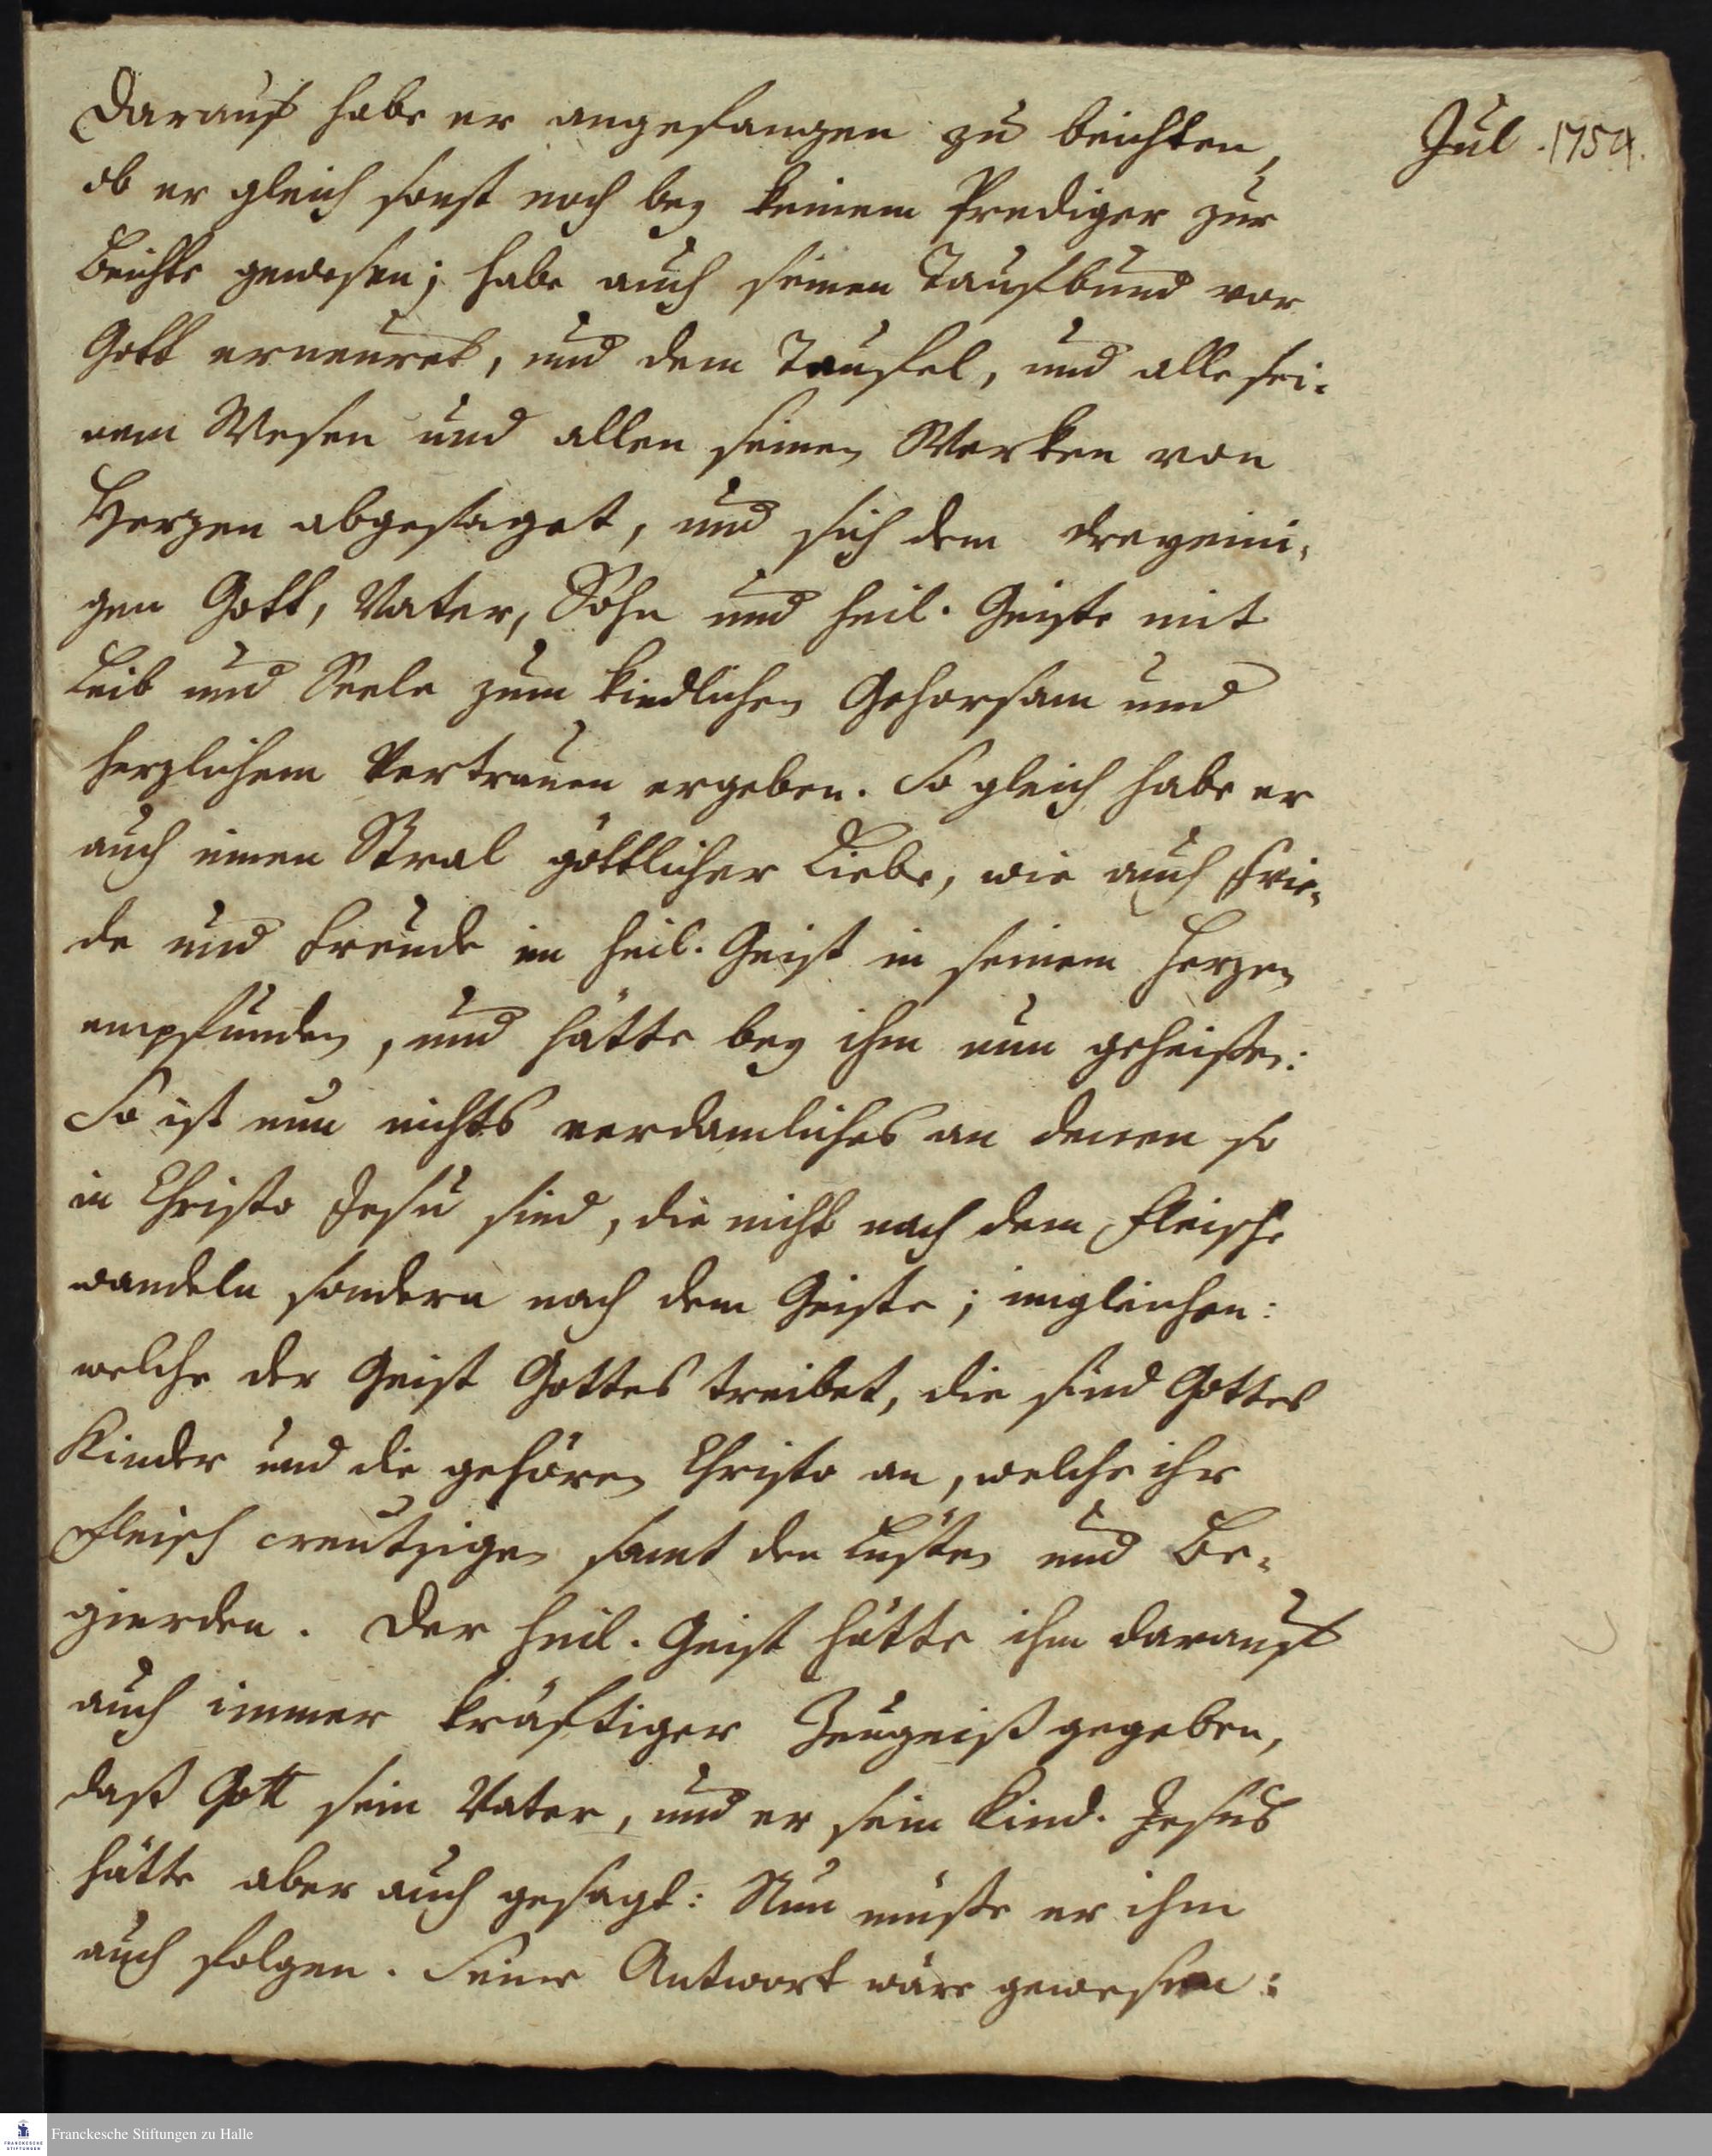 Darauf habe er angefangen zu beichten,
Jul. 1754.
ob er gleich sonst noch bey keinem Prediger zur
Beichte gewesen; habe auch seinen Taufbund vor
Gott erneuret, und dem Teufel, und alle sei-
nem Wesen und allen seinen Werken von
Herzen abgesaget, und sich dem dreyeini-
gen Gott, Vater, Sohn und heil. Geiste mit
Leib und Seele zum kindlichen Gehorsam und
herzlichem Vertrauen ergeben. So gleich habe er
auch einen Stral göttlicher Liebe, wie auch Frie-
de und Freude im heil. Geist in seinem Herzen
empfunden, und hätte bey ihm nun geheißen:
So ist nun nichts verdamliches an denen so
in Christo Jesu sind, die nicht nach dem Fleische
wandeln sondern nach dem Geiste; imgleichen:
welche der Geist Gottes treibet, die sind Gottes
Kinder und die gehören Christo an, welche ihr
Fleisch creutzigen samt den Lüsten und Be-
gierden. Der heil. Geist hätte ihm darauf
auch immer kräftiger Zeugniß gegeben,
daß Gott sein Vater, und er sein Kind. Jesus
hätte aber auch gesagt: Nun müste er ihm
auch folgen. Seine Antwort wäre gewesen:
Franckesche Stiftungen zu Halle
FRANCKESCHE STIFTUNGEN